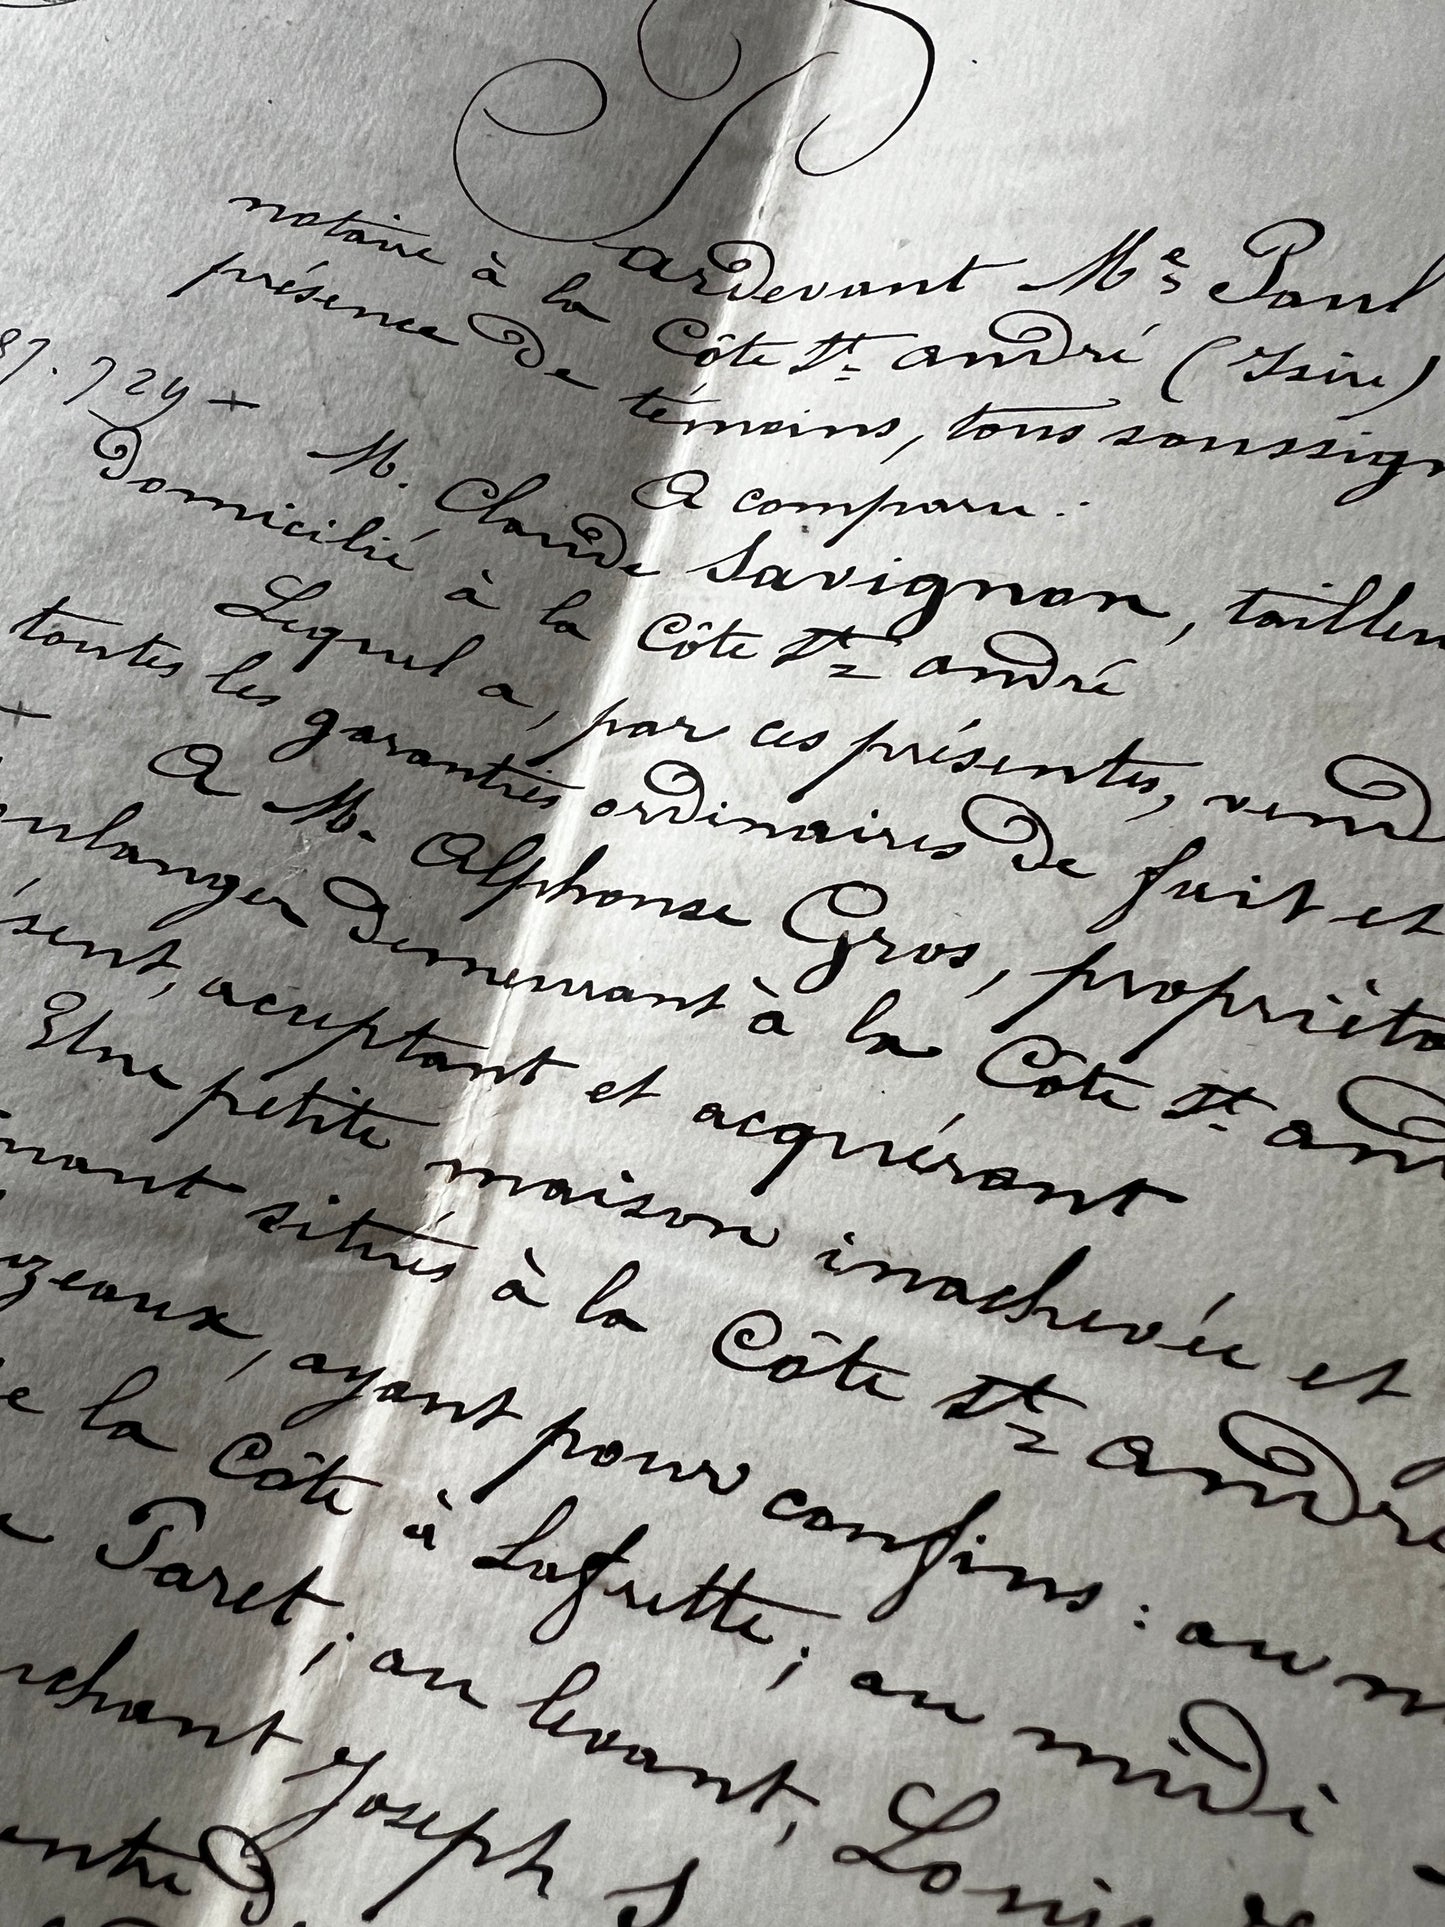 Pardevant Me Paul
notaire à la Côte St andré (Isère)
présence de témoins, tous soussign
A comparu :
87.724 +
M. Claude Savignon, tailleu
Domicilié à la Côte St andré
Lequel a, par ces présentes, vend
toutes les garanties ordinaires de fait et
A M. Alphonse Gros, propriéta
oulanger demeurant à la Côte St and
ésent, acceptant et acquérant
Une petite maison inachevée et
nant situés à la Côte St andré
uzeaux, ayant pour confins : au n
e la Côte à Lafrette ; au midi
Paret ; au levant, Louis
chant Joseph S
entre